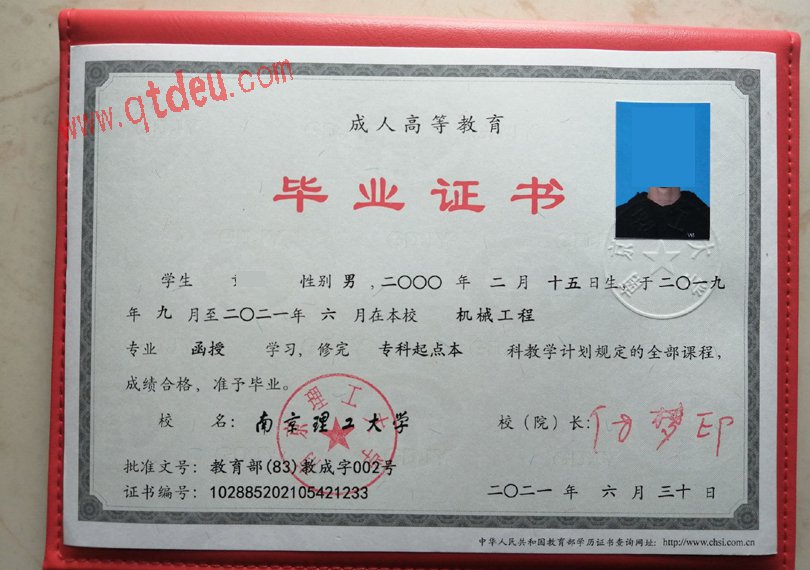 www.qtdeu.com
成人高等教育
毕业证书
学生 性别 男，二〇〇〇 年 二 月 十五日生，于二〇一九
年 九 月至二〇二一年 六 月在本校 机械工程
专业 函授 学习，修完 专科起点本 科教学计划规定的全部课程，
成绩合格，准予毕业。
校 名：南京理工大学 校（院）长：
批准文号：教育部(83)教成字002号
证书编号：102885202105421233 二〇二一 年 六 月 三十 日
中华人民共和国教育部学历证书查询网址：http://www.chsi.com.cn